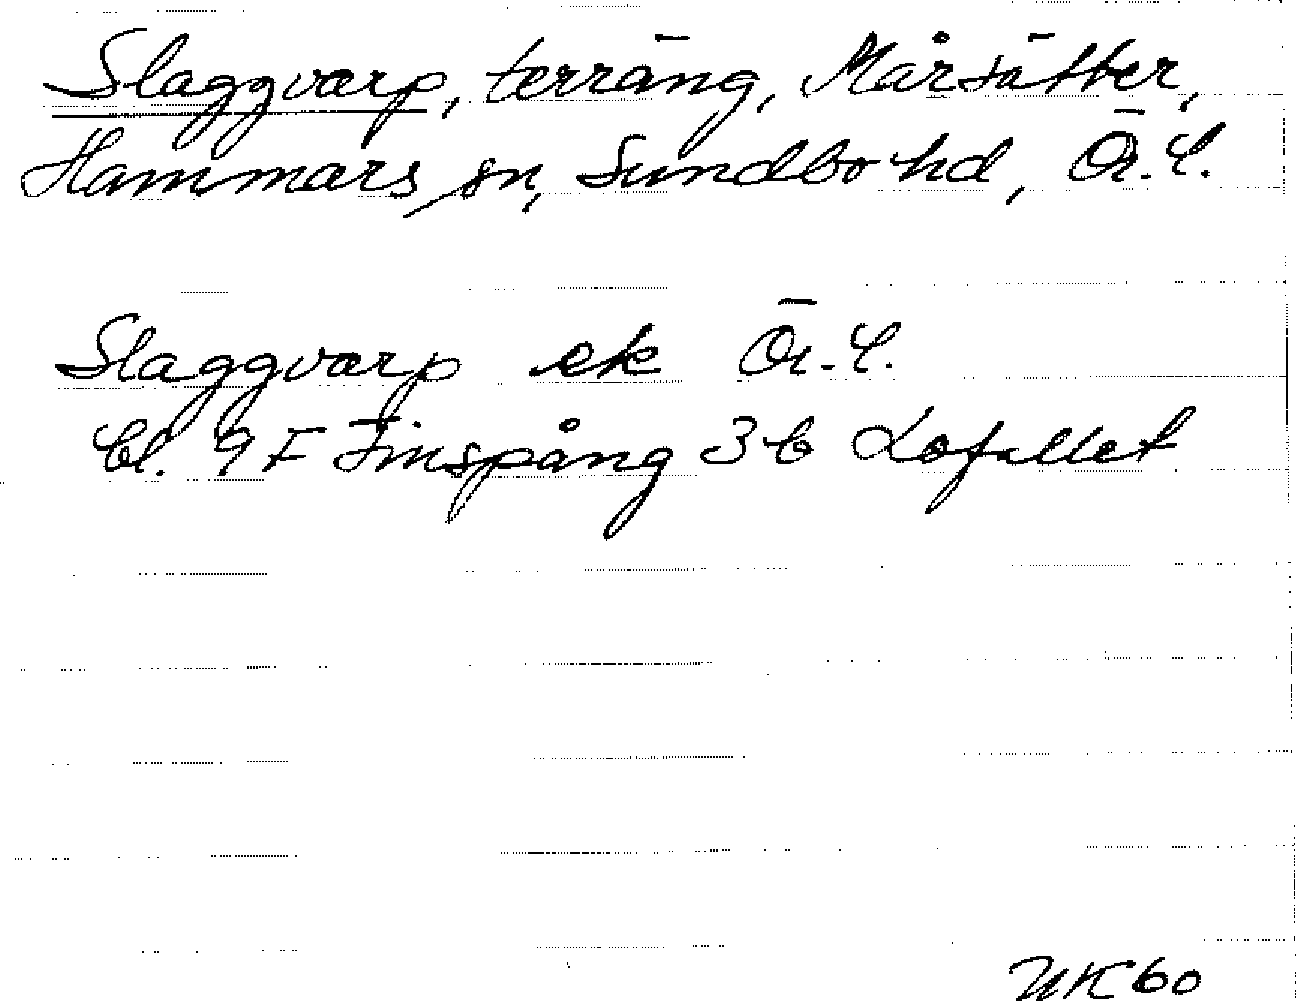 Slaggvarp, terräng, Mårsätter,
Hammars sn, Sundbo hd, Ör. l.
Slaggvarp ek Ör. l.
bl. 9F Finspång 3b Lofallet
UK60